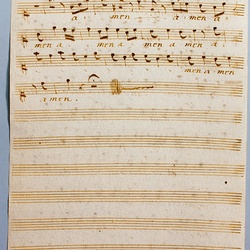 a men a men a
men a men a men a men a
men a men
a men.